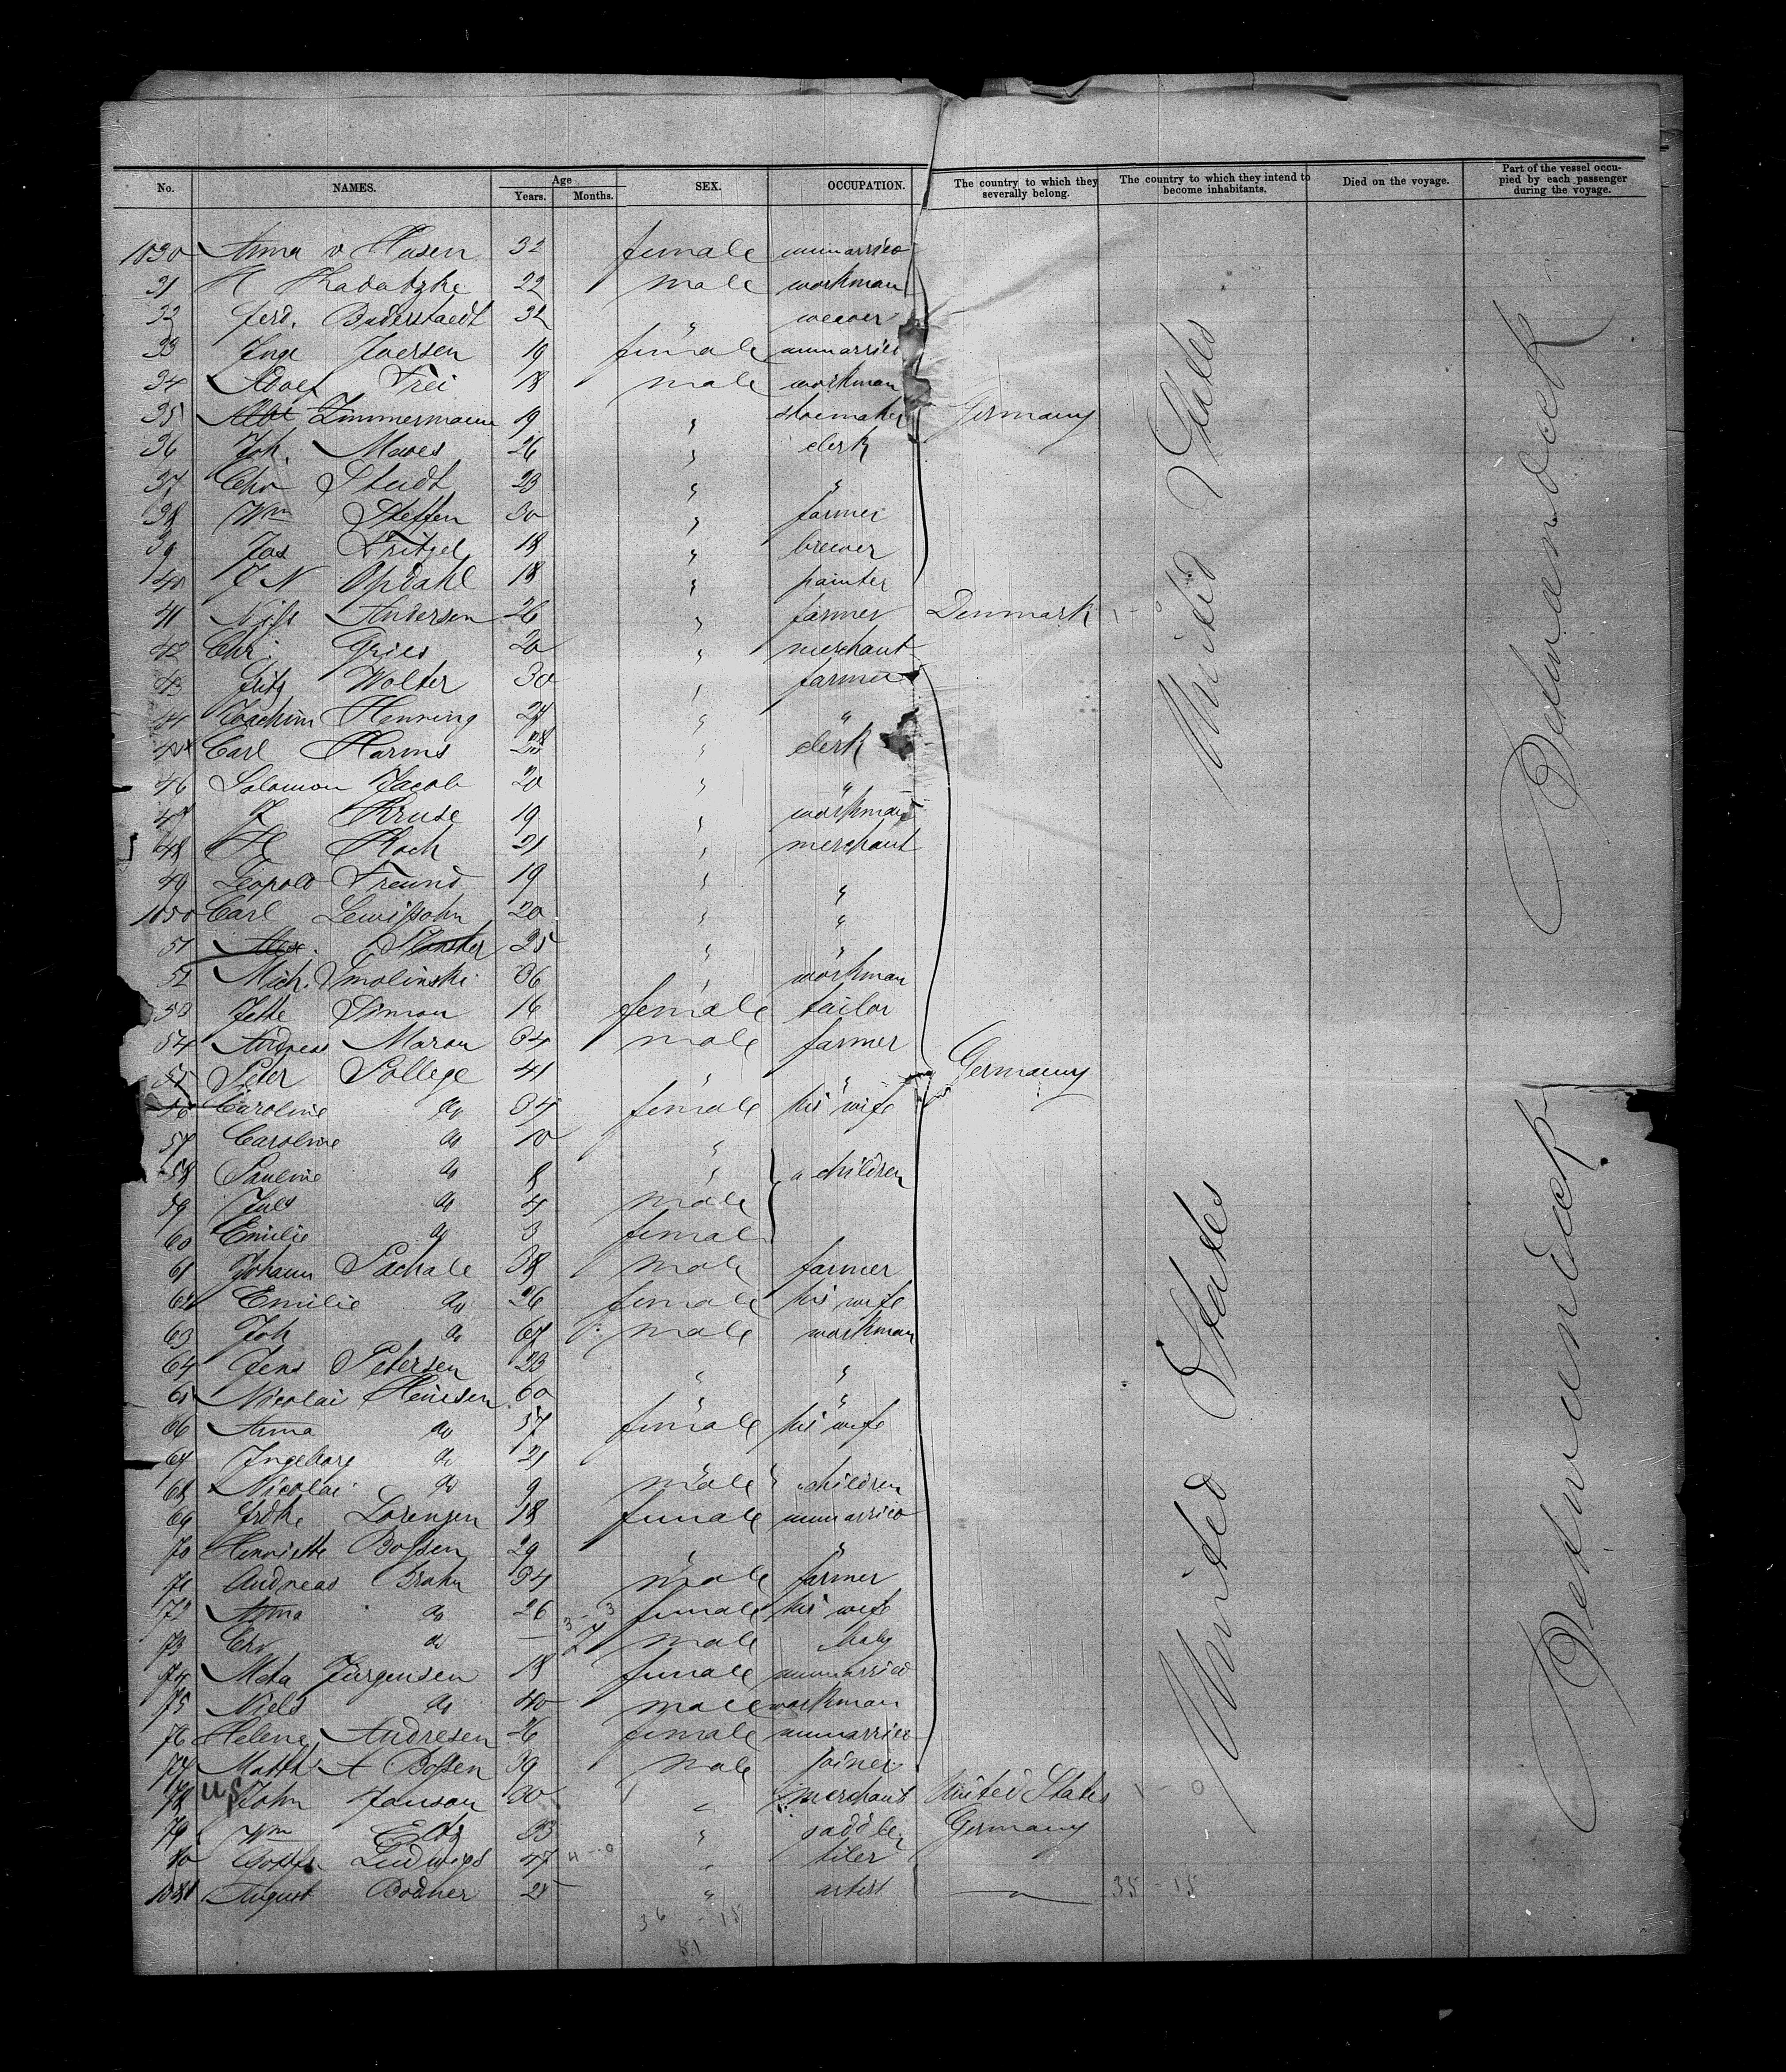 No. NAMES. Age Years. Months. SEX. OCCUPATION. The country to which they severally belong. The country to which they intend to become inhabitants. Died on the voyage. Part of the vessel occupied by each passenger during the voyage.
1030 Anna v Husen 32 female unmarried
31 H Kadatzke 22 male workman
32 Ferd. Buderstaedt 32 " weaver
33 Inge Iversen 19 female unmarried
34 Adolf Frei 18 male workman
35 Albt Zimmermann 19 " shoemaker Germany
36 Joh. Maves 26 " clerk
37 Chr Studt 23 " "
38 Wm Steffen 30 " farmer
39 Jos Fritzel 18 " brewer
40 J N Opdahl 18 " painter
41 Niss Andersen 26 " farmer Denmark 1 - 0
42 Chr. Gries 20 " merchant
43 Fritz Wolter 30 " farmer
44 Joachim Henning 27 " "
45 Carl Harms 28 " clerk
46 Salomon Jacob 20 " "
47 J Kruse 19 " workman
48 H Koch 21 " merchant
49 Leopold Freund 19 " "
1050 Carl Lewissohn 20 " "
51 Alex. 25 " "
52 Mich. Smolinski 36 " workman
53 Jette Simon 16 female tailor
54 Andreas Maron 34 male farmer
55 Peter Pollege 41 " " Germany
56 Caroline do 34 female his wife
57 Caroline do 10 "
58 Pauline do 8 " " children
59 Juls do 4 male
60 Emilie do 3 female
61 Johann Pachale 38 male farmer
62 Emilie do 26 female his wife
63 Joh do 67 male workman
64 Jens Petersen 23 " "
65 Nicolai Heinsen 60 " "
66 Anna do 57 female his wife
67 Ingeborg do 21 "
68 Nicolai do 9 male " children
69 Frdke Lorenzen 18 female unmarried
70 Henriette Bossen 29 " "
71 Andreas Brahn 34 male farmer
72 Anna do 26 3 - 3 female his wife
73 Chr do — 7 male baby
74 Meta Jürgensen 18 female unmarried
75 Niels do 40 male workman
76 Helene Andresen 26 female unmarried
77 Matth. A Bossen 39 male joiner
78 US John Janson 30 " merchant United States 1 - 0
79 Wm 33 " saddler Germany
80 Ludwigs 47 4 - 0 " tiler
1081 August Bodner 25 " artist " 35 - 15
36 - 15
51
United States
United States
Betweendeck
Betweendeck